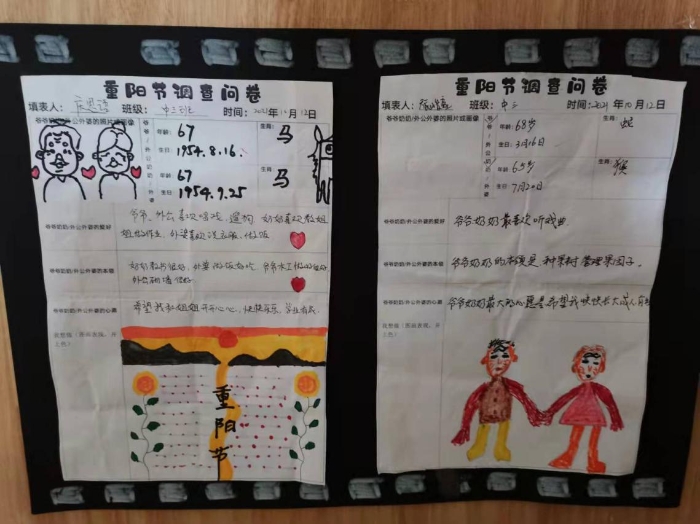 重阳节调查问卷
填表人： 班级：中三班 时间：2021年10月12日
爷爷奶奶/外公外婆的照片或画像
爷爷/外公
年龄：67
生日：1954.8.16.
生肖：马
奶奶/外婆
年龄：67
生日：1954.9.25
生肖：马
爷爷奶奶/外公外婆的爱好
爷爷、外公喜欢唱戏、遛狗 奶奶喜欢教姐
姐做作业、外婆喜欢洗衣服、做饭
爷爷奶奶/外公外婆的本领
奶奶教书很好、外婆做饭好吃 爷爷水工做的很好
外公砌墙很好
爷爷奶奶/外公外婆的心愿
希望我和姐姐开开心心、快快乐乐、学业有成
我要做（图画表现，并
上色）
重阳节
重阳节调查问卷
填表人： 班级：中三 时间：2021年10月12日
爷爷奶奶/外公外婆的照片或画像
爷爷/外公
年龄：68岁
生日：3月16日
生肖：蛇
奶奶/外婆
年龄：65岁
生日：7月20日
生肖：猴
爷爷奶奶/外公外婆的爱好
爷爷奶奶最喜欢听戏曲.
爷爷奶奶/外公外婆的本领
爷爷奶奶的本领是种果树管理果园子.
爷爷奶奶/外公外婆的心愿
爷爷奶奶最大的心愿是希望我快快长大成人
我要做（图画表现，并
上色）